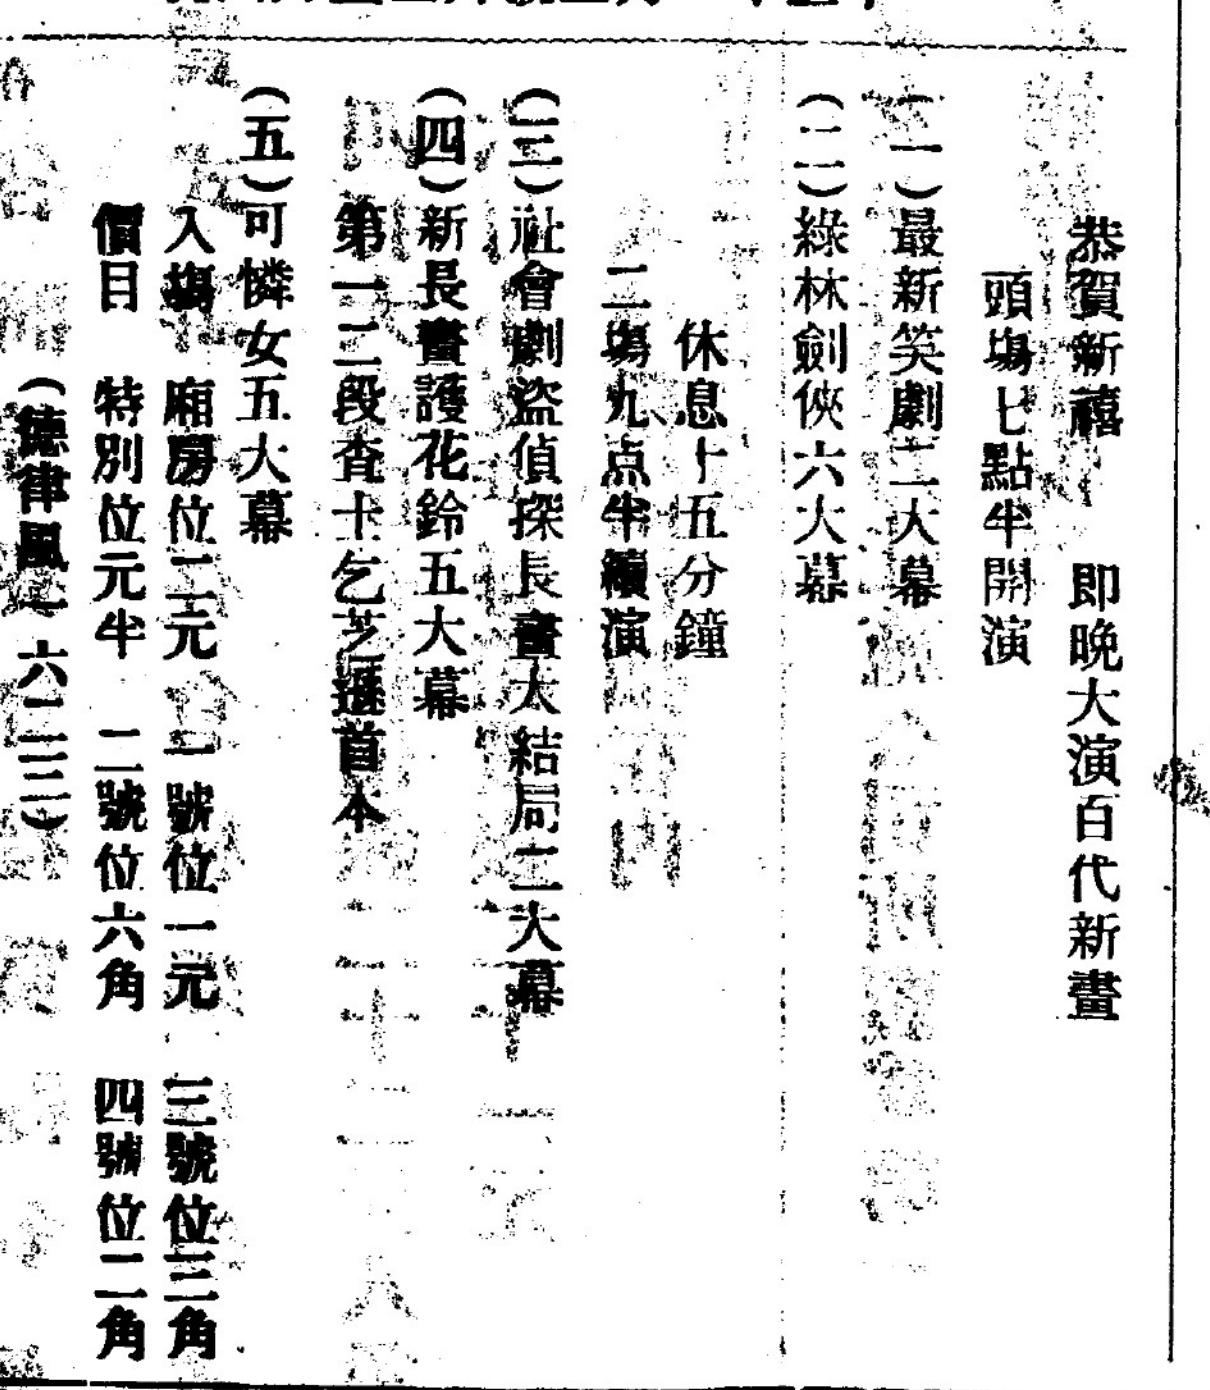 恭賀新禧　即晚大演百代新畫
頭塲七點半開演
(一)最新笑劇二大幕
(二)綠林劍俠六大幕
休息十五分鐘
二塲九点半續演
(三)社會劇盜偵探長畫大結局二大幕
(四)新長畫護花鈴五大幕
第一二段查卡乞芝遜首本
(五)可憐女五大幕
入塲　廂房位二元　一號位一元　三號位三角
價目　特別位元半　二號位六角　四號位二角
(德律風一六二三)